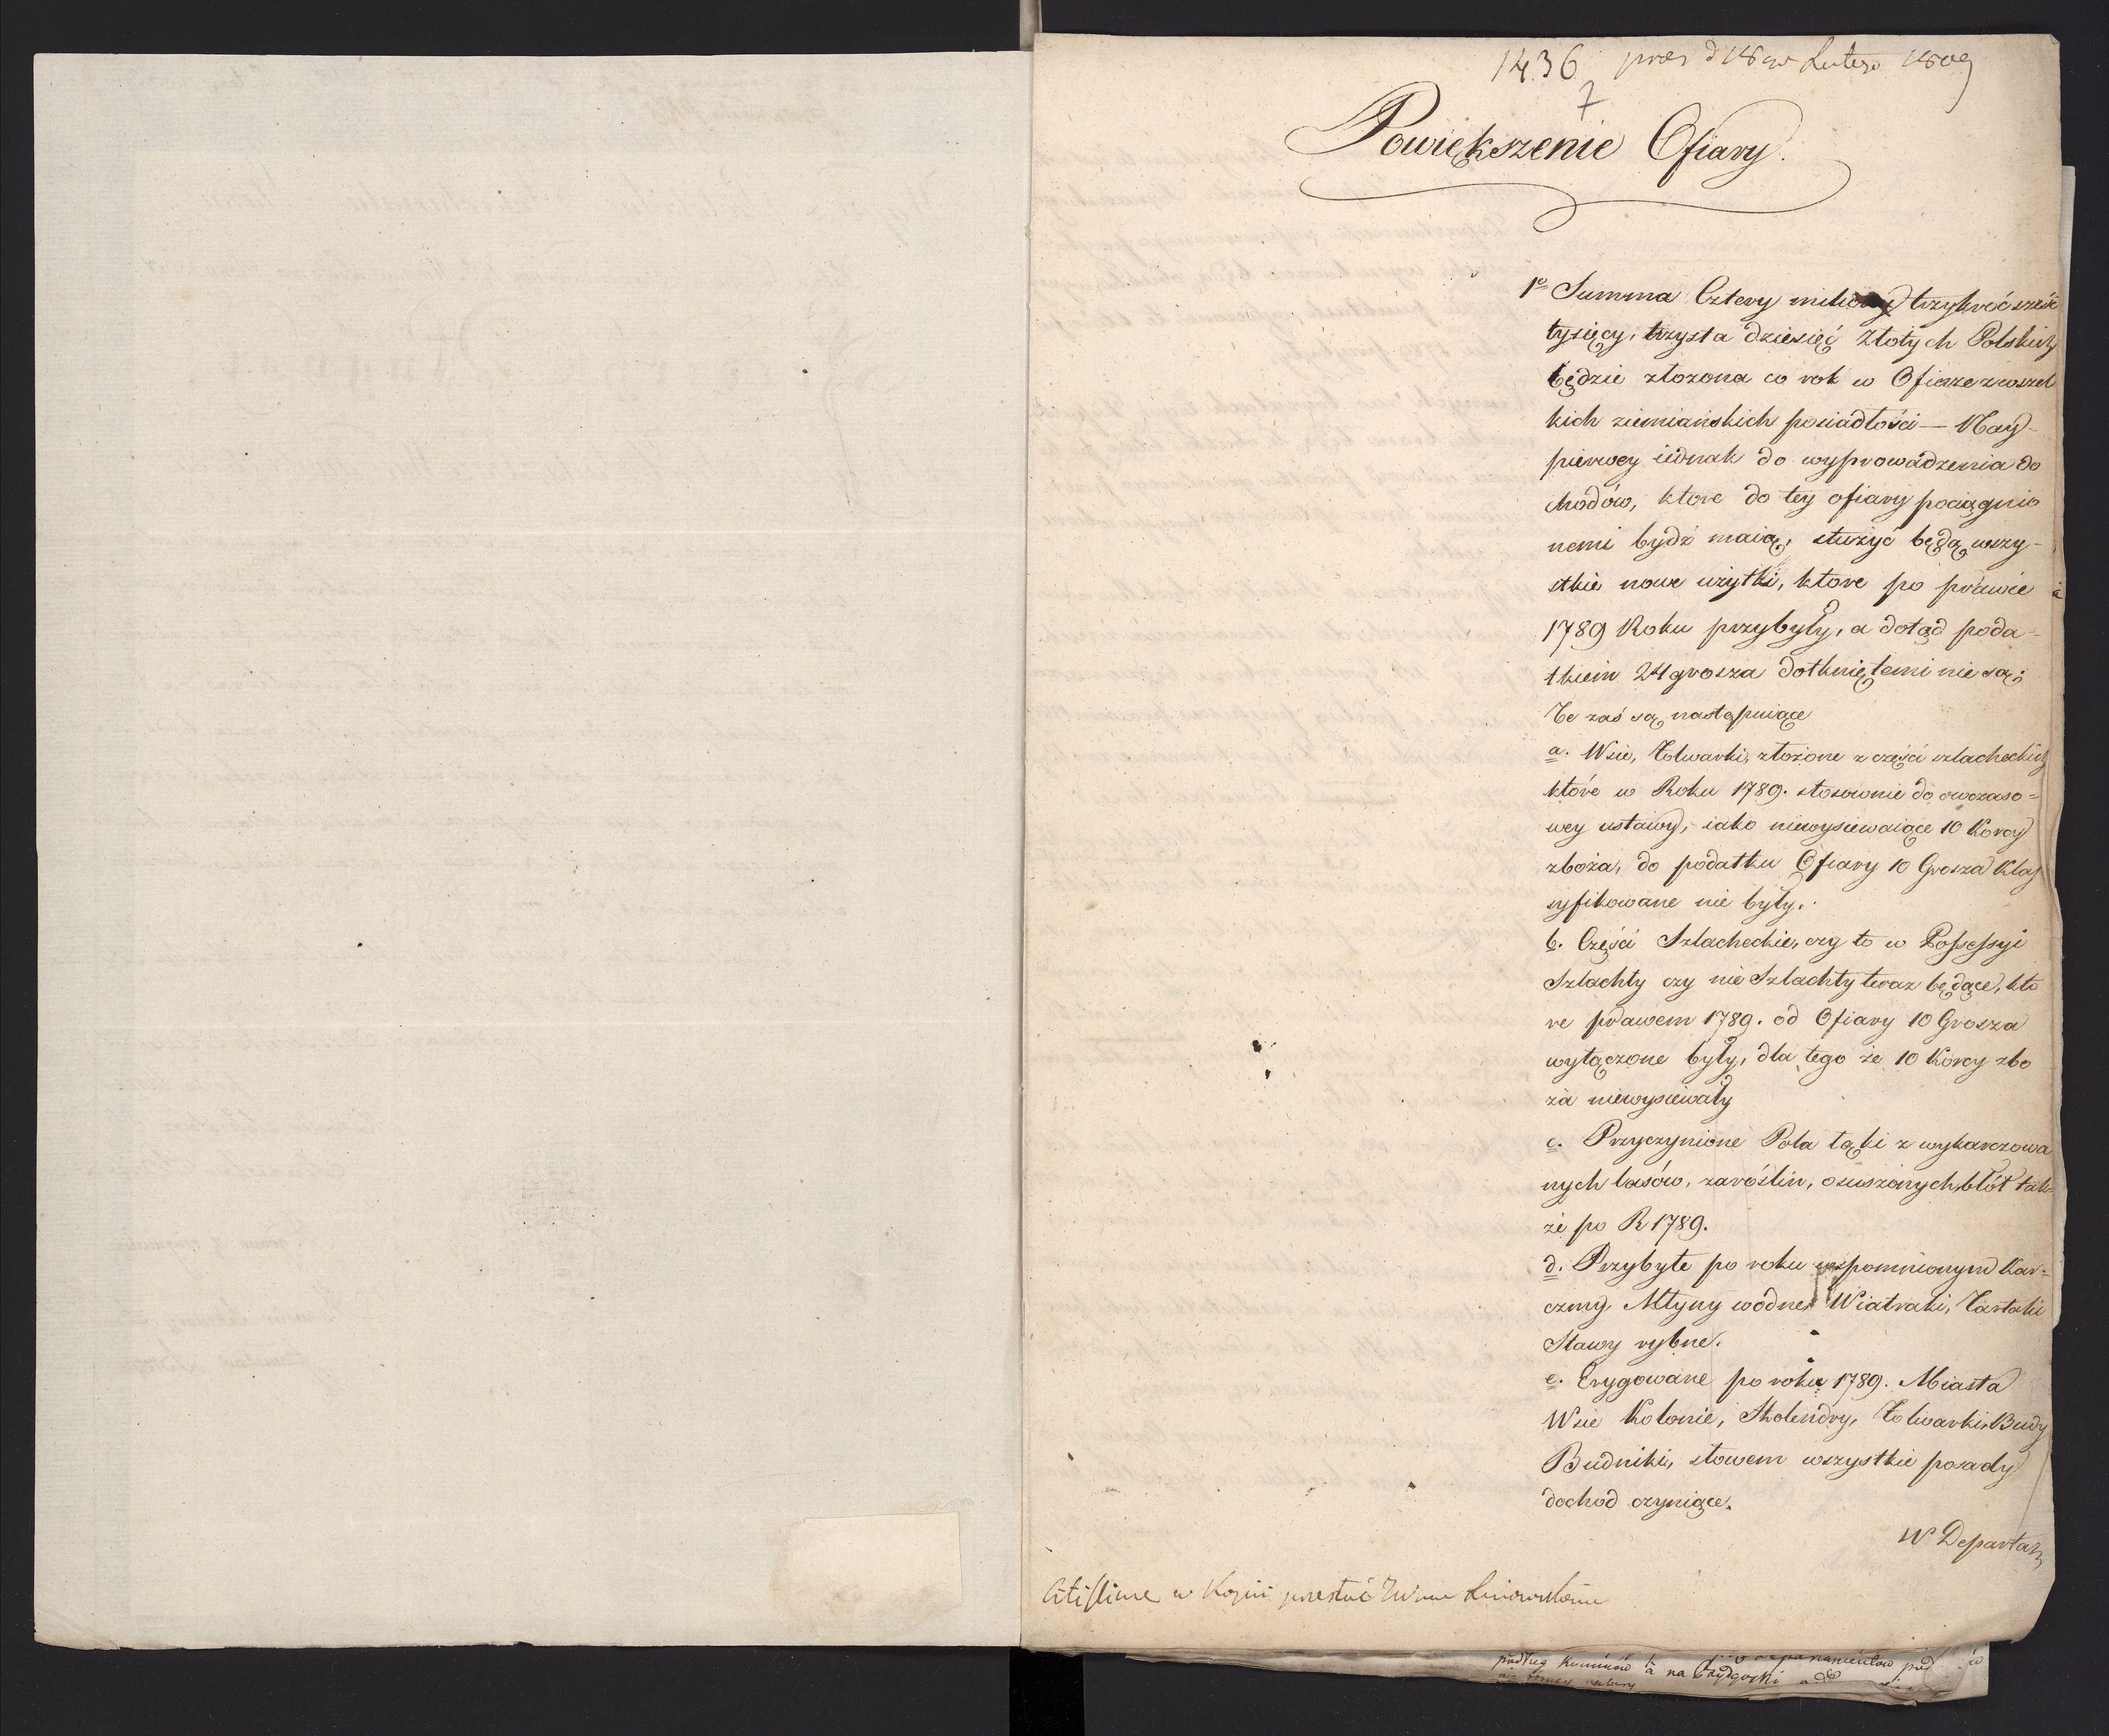 1436 pres d 18 Lutego 1809
7
Powiększenie Ofiary.
1º Summa Cztery miliony trzykroć sześć
tysięcy, trzysta dziesięć Złotych Polskich
będzie złożona co rok w Ofierze z wszel
kich ziemiańskich posiadłości — Nay-
pierwey iednak do wyprowadzenia do
chodów, ktore do tey ofiary pociągnio
nemi bydź maią, służyć będą wszy-
stkie nowe użytki, ktore po prawie
1789 Roku przybyły, a dotąd poda=
tkiem 24 grosza dotkniętemi nie są;
Te zaś są następuiące
a. Wsie, Folwarki, złożone z części szlacheckich
które w Roku 1789. stosownie do owczaso=
wey ustawy, iako niewysiewaiące 10 Korcy
zboża, do podatku Ofiary 10 Grosza klas
syfikowane nie były.
b. Części Szlacheckie, czy to w Possessyi
Szlachty czy nie Szlachty teraz będące, któ
re prawem 1789. od Ofiary 10 Grosza
wyłączone były, dla tego że 10 Korcy zbo
ża niewysiewały
c. Przyczynione Pola łąki z wykarczowa
nych lasów, zaroślin, osuszonych błót tak-
że po R 1789.
d. Przybyłe po roku wspomnionym Kar=
czmy Młyny wodne Wiatraki, Tartaki
Stawy rybne.
e. Erygowane po roku 1789. Miasta
Wsie Kolonie, Holendry, Folwarki, Budy
Budniki, słowem wszystkie posady
dochod czyniące.
W Departam
Citissime w Kopii przesłać
podług kominów na Bydgoski